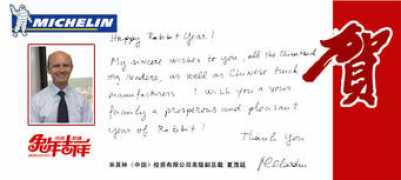 MICHELIN
Happy Rabbit Year!
My sincere wishes to you, all the
my readers, as well as Chinese truck
manufacturers! I wish you & your
family a prosperous and pleasant
year of Rabbit!
Thank You
兔年吉祥
米其林（中国）投资有限公司高级副总裁
賀